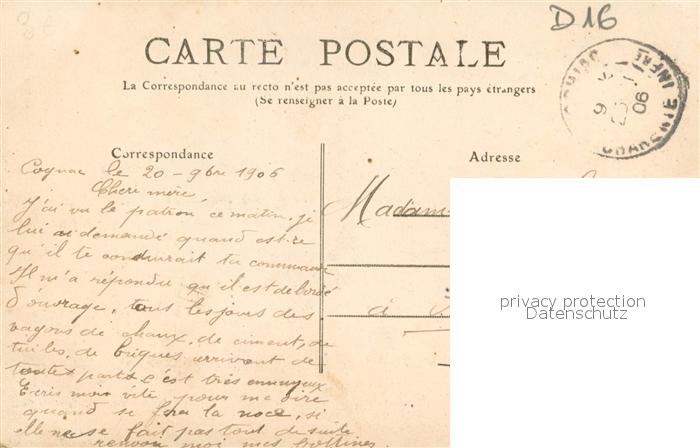 D16
CARTE POSTALE
La Correspondance au recto n'est pas acceptée par tous les pays étrangers
(Se renseigner à la Poste)
CHARENTE INFRE
9
06
Correspondance
Adresse
Cognac le 20 - 9bre 1906
Cheri mère
J'ai vu le patron ce matin, je
lui ai demandé quand est-ce
qu'il te conduirait ta commande
Il m'a répondu qu'il est debordé
d'ouvrage, tous les jours des
vagons de chaux, de ciment, de
tuiles, de briques arrivent de
toutes parts c'est très ennuyeux
Ecris moi vite pour me dire
quand se fra la noce, si
elle ne se fait pas tout de suite
renvoi moi mes bottines
Madam
à
privacy protection
Datenschutz